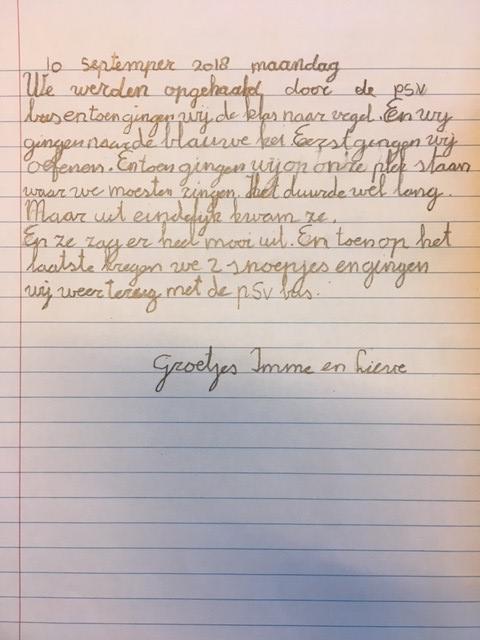 10 septemper 2018 maandag
We werden opgehaald door de psv
bus en toen gingen wij de klas naar vegel. En wij
gingen naar de blauwe kei. Eerst gingen wij
oefenen. En toen gingen wij op onze plek staan
waar we moesten zingen. Het duurde wel lang.
Maar uit eindelijk kwam ze.
En ze zag er heel mooi uit. En toen op het
laatste kregen we 2 snoepjes en gingen
wij weer terug met de pSv bus.
Groetjes Imme en Lieve